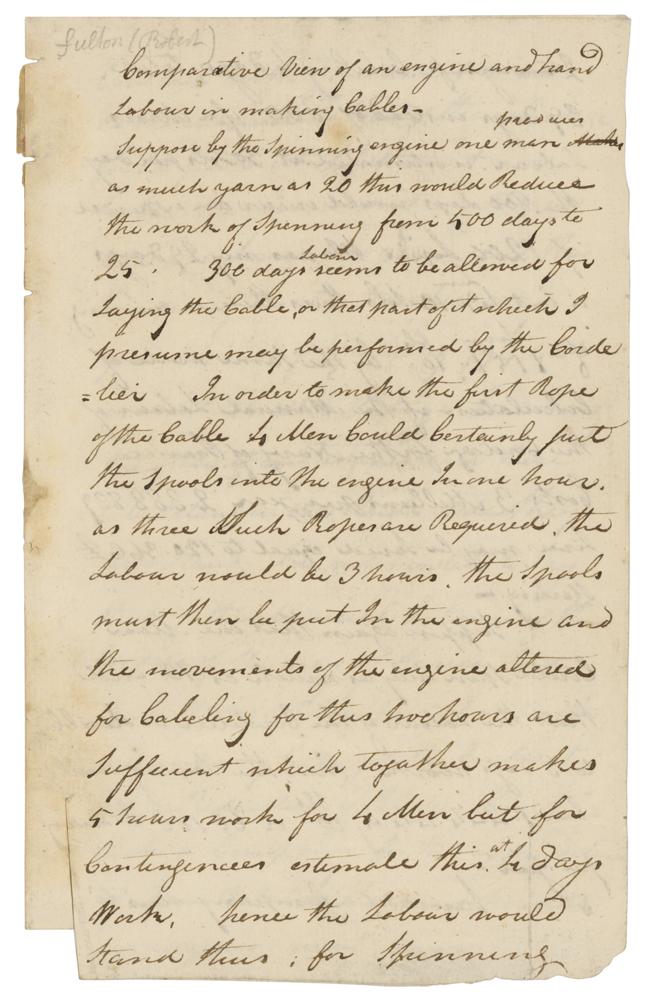 Fulton (Robert)
Comparative View of an engine and hand
Labour in making Cables -
produces
Suppose by the Spinning engine one man Makes
as much yarn as 20 this would Reduce
the work of Spinning from 500 days to
25 . 300 days Labour seems to be allowed for
Laying the Cable, or that part of it which I
presume may be performed by the Corde
=lier In order to make the first Rope
of the Cable 4 Men Could Certainly put
the Spools into the engine In one hour.
as three Such Ropes are Required. the
Labour would be 3 hours. the Spools
must then be put In the engine and
the movements of the engine altered
for Cabeling for this two hours are
Sufficient which together makes
5 hours work for 4 Men but for
Contingencees estemate this at 4 days
Work. hence the Labour would
Stand thus : for Spinning